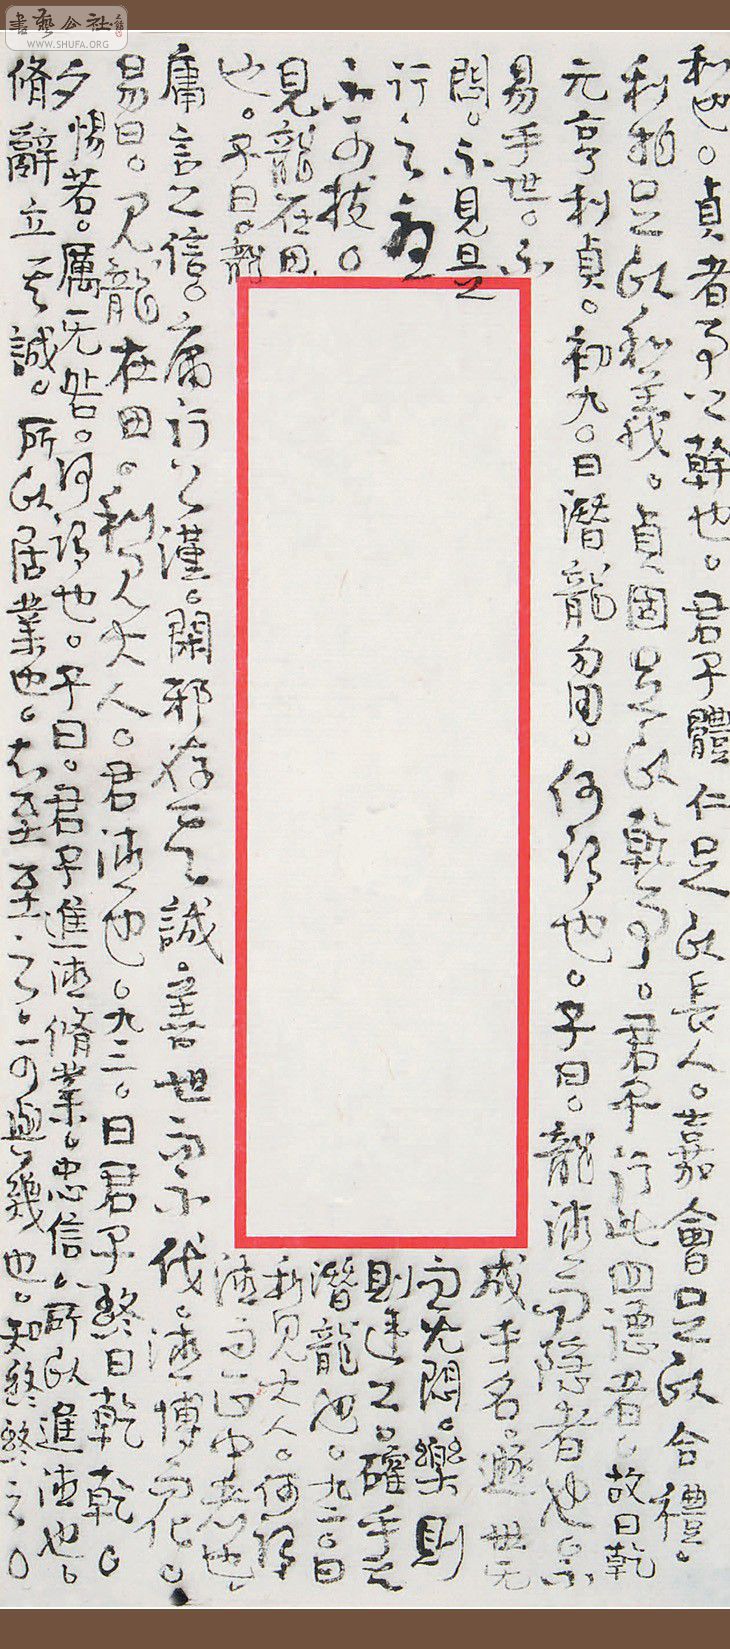 書藝公社
WWW.SHUFA.ORG
和也。貞者事之幹也。君子體仁足以長人。嘉會足以合禮。
利物足以和義。貞固足以乾事。君子行此四德者。故曰乾
元亨利貞。初九。曰潛龍勿用。何謂也。子曰。龍德而隱者也。不
易乎世。不成乎名。遯世无
悶。不見是而无悶。樂則
行之憂則違之。確乎其
不可拔。潛龍也。九二。曰
見龍在田利見大人。何謂
也。子曰。龍德而正中者也。
庸言之信。庸行之謹。閑邪存其誠。善世而不伐。德博而化。
易曰。見龍在田。利見大人。君德也。九三。曰君子終日乾乾。
夕惕若。厲无咎。何謂也。子曰。君子進德脩業。忠信。所以進德也。
脩辭立其誠。所以居業也。知至至之。可與幾也。知終終之。